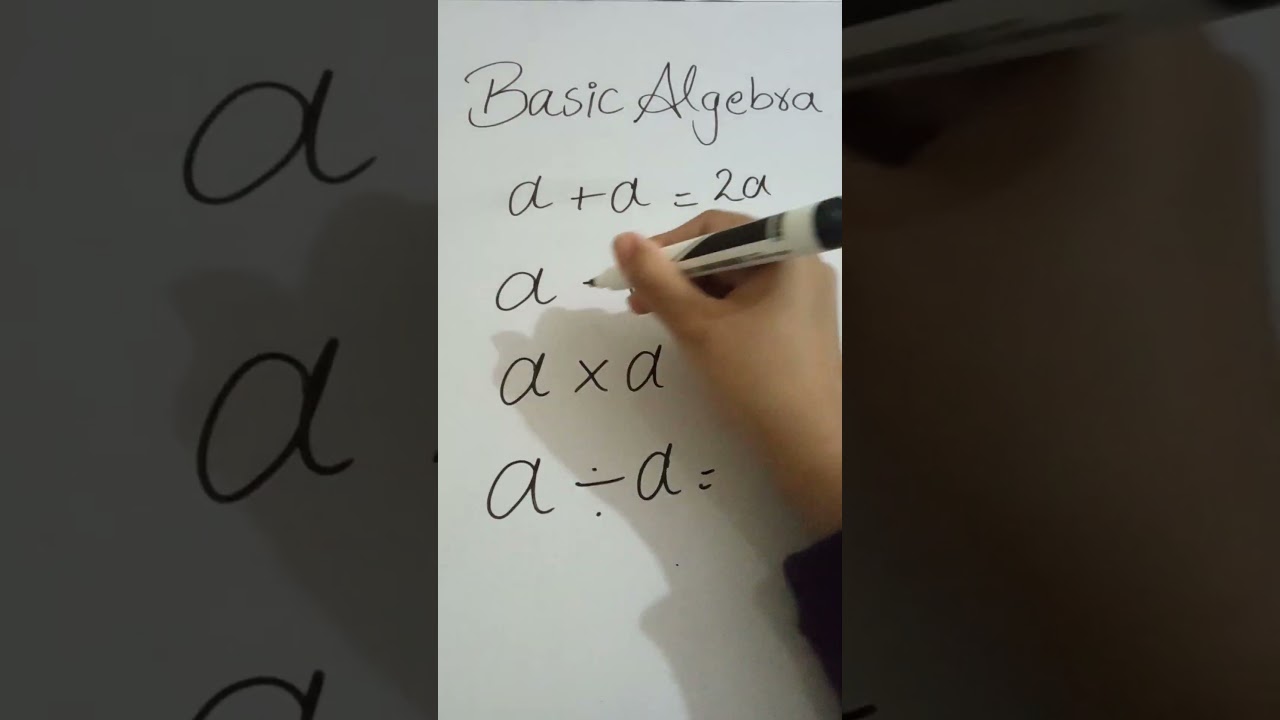 Basic Algebra
a + a = 2a
a -
a × a
a ÷ a =